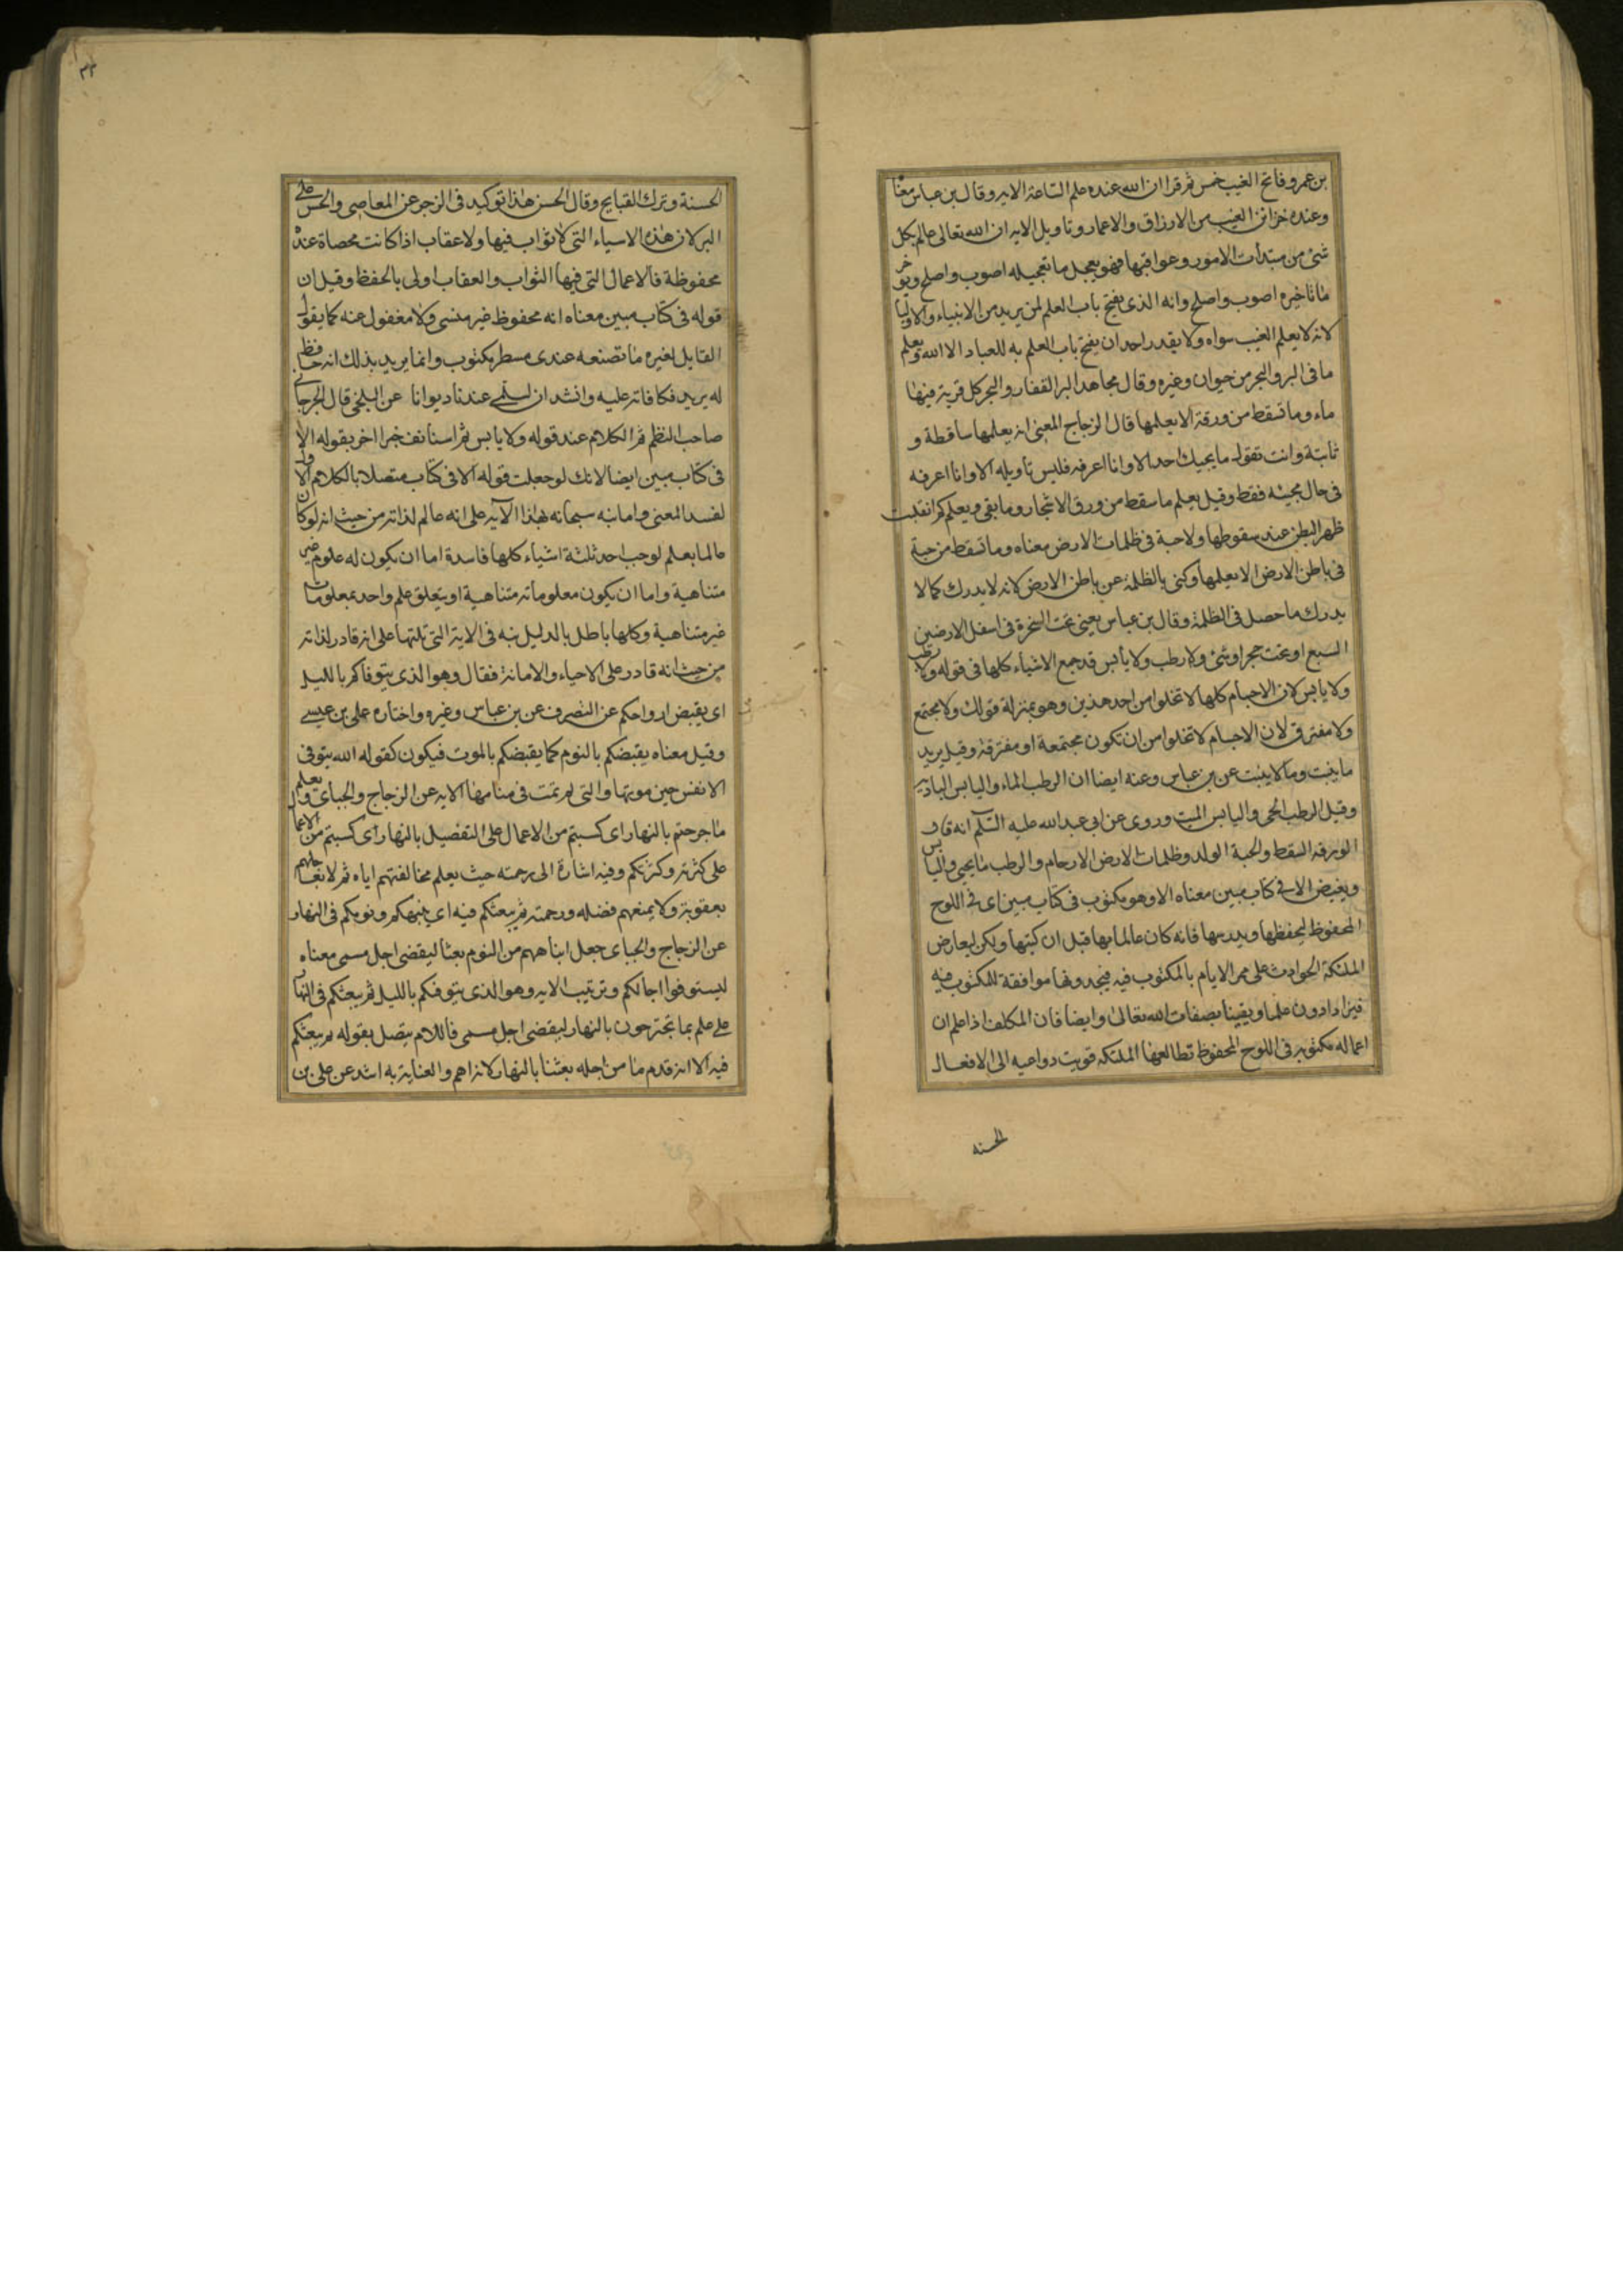 بن عمر وفاتح الغيب خمس ثم قرا ان الله عنده علم الساعة الايه وقال بن عباس معنا
وعنده خزائن الغيب من الارزاق والاعمار وتاويل الايه ان الله تعالى عالم بكل
شئ من مبتدأت الامور وعواقبها فهو يعجل ما تعجيله اصوب واصلح ويوخر
ما تاخيره اصوب واصلح وانه الذى يفتح باب العلم لمن يريد من الانبياء والاوليا
لانه لا يعلم الغيب سواه ولا يقدر احد ان يفتح باب العلم به للعباد الا الله ويعلم
ما فى البر والبحر من حيوان وغيره وقال مجاهد البر القفار والبحر كل قرية فيها
ماء وما تسقط من ورقة الا يعلمها قال الزجاج المعنى انه يعلمها ساقطة و
ثابتة وانت تقول ما يجيك احد الا وانا اعرفه فليس تاويله الا وانا اعرفه
فى حال مجيئه فقط وقيل يعلم ما سقط من ورق الاشجار وما بقى ويعلم كم انقلبت
ظهر البطن عند سقوطها ولا حبة فى ظلمات الارض معناه وما تسقط من حبة
فى باطن الارض الا يعلمها وكنى بالظلمة عن باطن الارض لانه لا يدرك كما لا
يدرك ما حصل فى الظلمة وقال بن عباس يعنى تحت الصخرة فى اسفل الارضين
السبع او تحت حجر او شئ ولا رطب ولا يابس قد جمع الاشياء كلها فى قوله ولا رطب
ولا يابس لان الاجسام كلها لا تخلوا من احد هذين وهو بمنزلة قولك ولا مجتمع
ولا مفترق لان الاجسام لا تخلوا من ان تكون مجتمعة او مفترقة وقيل يريد
ما ينبت وما لا ينبت عن بن عباس وعنه ايضا ان الرطب الماء واليابس البادية
وقيل الرطب الحى واليابس الميت وروى عن ابى عبد الله عليه السلم انه قال
الورقه السقط والحبة الولد وظلمات الارض الارحام والرطب ما يحيى واليابس
ويغيض الا فى كتاب مبين معناه الا وهو مكتوب فى كتاب مبين اى فى اللوح
المحفوظ ليحفظها ويدرسها فانه كان عالما بها قبل ان كتبها ولكن ليعارض
الملئكة الحوادث على ممر الايام بالمكتوب فيه فيجدونها موافقة للمكتوب فيه
فيزدادون علما ويقينا بصفات الله تعالى وايضا فان المكلف اذا علم ان
اعماله مكتوبه فى اللوح المحفوظ تطالعها الملئكه قويت دواعيه الى الافعال
الحسنه
٣٣
الحسنة وترك القبايح وقال الحسن هذا توكيد فى الزجر عن المعاصى والحس على
البر لان هذه الاسياء التى لا ثواب فيها ولا عقاب اذا كانت محصاة عنده
محفوظة فالاعمال التى فيها الثواب والعقاب اولى بالحفظ وقيل ان
قوله فى كتاب مبين معناه انه محفوظ غير منسى ولا مغفول عنه كما يقول
القايل لغيره ما تصنعه عندى مسطر مكتوب وانما يريد بذلك انه حافظ
له يريد مكافاته عليه وانشد ان لسلمى عندنا ديوانا عن البلخى قال الجرجانى
صاحب النظم ثم الكلام عند قوله ولا يابس ثم استانف خبرا اخر بقوله الا
فى كتاب مبين ايضا لانك لو جعلت قوله الا فى كتاب متصلا بالكلام الاول
لفسد المعنى واما نبه سبحانه بهذا الآية على انه عالم لذاته من حيث انه لو كان
عالما بعلم لوجب احد ثلثة اشياء كلها فاسدة اما ان يكون له علوم غير
متناهية واما ان يكون معلوماته متناهية او يتعلق علم واحد بمعلومات
غير متناهية وكلها باطل بالدليل نبه فى الاية التى تلتها على انه قادر لذاته
من حيث انه قادر على الاحياء والاماتة فقال وهو الذى يتوفاكم بالليل
اى يقبض ارواحكم عن التصرف عن بن عباس وغيره واختاره على بن عيسى
وقيل معناه يقبضكم بالنوم كما يقبضكم بالموت فيكون كقوله الله يتوفى
الانفس حين موتها والتى لم تمت فى منامها الايه عن الزجاج والجباى ويعلم
ما جرحتم بالنهار اى كسبتم من الاعمال على التفصيل بالنهار اى كسبتم من الاعمال
على كثرته وكثرتكم وفيه اشارة الى رحمته حيث يعلم مخالفتهم اياه ثم لا يعاجلهم
بعقوبة ولا يمنعهم فضله ورحمته ثم يبعثكم فيه اى ينبهكم من نومكم فى النهار
عن الزجاج والجباى جعل انباههم من النوم بعثا ليقضى اجل مسمى معناه
ليستوفوا اجالكم وترتيب الايه وهو الذى يتوفكم بالليل ثم يبعثكم فى النهار
على علم بما تجترحون بالنهار ليقضى اجل مسمى فاللام يتصل بقوله ثم يبعثكم
فيه الا انه قدم ما من اجله بعثنا بالنهار لانه اهم والعناية به اشد عن على بن